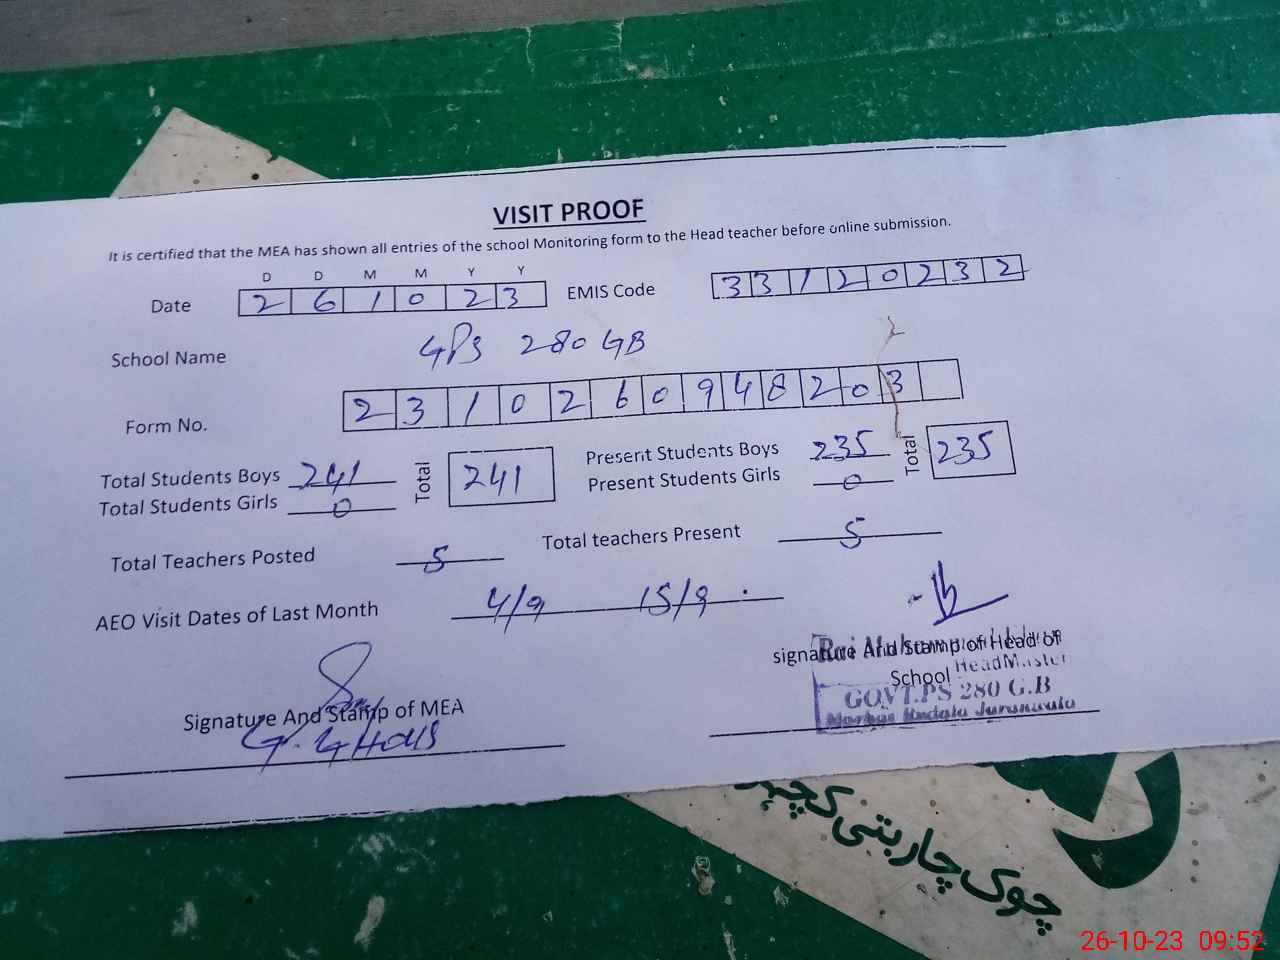 VISIT PROOF
It is certified that the MEA has shown all entries of the school Monitoring form to the Head teacher before online submission.
D D M M Y Y
Date 2 6 1 0 2 3 EMIS Code 3 3 1 2 0 2 3 2
School Name GPS 280 GB
2
Form No. 2 3 1 0 2 6 0 9 4 8 2 0 3
Total Students Boys 241 Total 241 Present Students Boys 235 Total 235
Total Students Girls 0 Present Students Girls 0
Total Teachers Posted 5 Total teachers Present 5
AEO Visit Dates of Last Month 4/9 15/9
signature And Stamp of Head of School
Rai Muhammad
HeadMaster
GOVT.PS 280 G.B
Jaranwala
Signature And Stamp of MEA
G. GHOUS
چوکی چار بتی کچہری
26-10-23 09:52